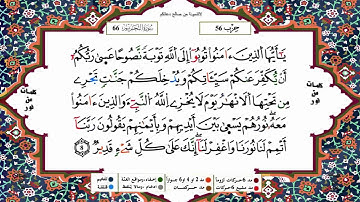 لاتنسونا من صالح دعائكم
سورة التحريم 66
حزب 56
يَٰٓأَيُّهَا ٱلَّذِينَ ءَامَنُوا۟ تُوبُوٓا۟ إِلَى ٱللَّهِ تَوْبَةً نَّصُوحًا عَسَىٰ رَبُّكُمُۥٓ
أَن يُكَفِّرَ عَنكُمْ سَيِّـَٔاتِكُمْ وَيُدْخِلَكُمْ جَنَّٰتٍ تَجْرِى
مِن تَحْتِهَا ٱلْأَنْهَٰرُ يَوْمَ لَا يُخْزِى ٱللَّهُ ٱلنَّبِىَّ وَٱلَّذِينَ ءَامَنُوا۟
مَعَهُۥ نُورُهُمْ يَسْعَىٰ بَيْنَ أَيْدِيهِمْ وَبِأَيْمَٰنِهِمْ يَقُولُونَ رَبَّنَآ
أَتْمِمْ لَنَا نُورَنَا وَٱغْفِرْ لَنَآ إِنَّكَ عَلَىٰ كُلِّ شَىْءٍ قَدِيرٌ ٨
كلمات
من
نور
كلمات
من
نور